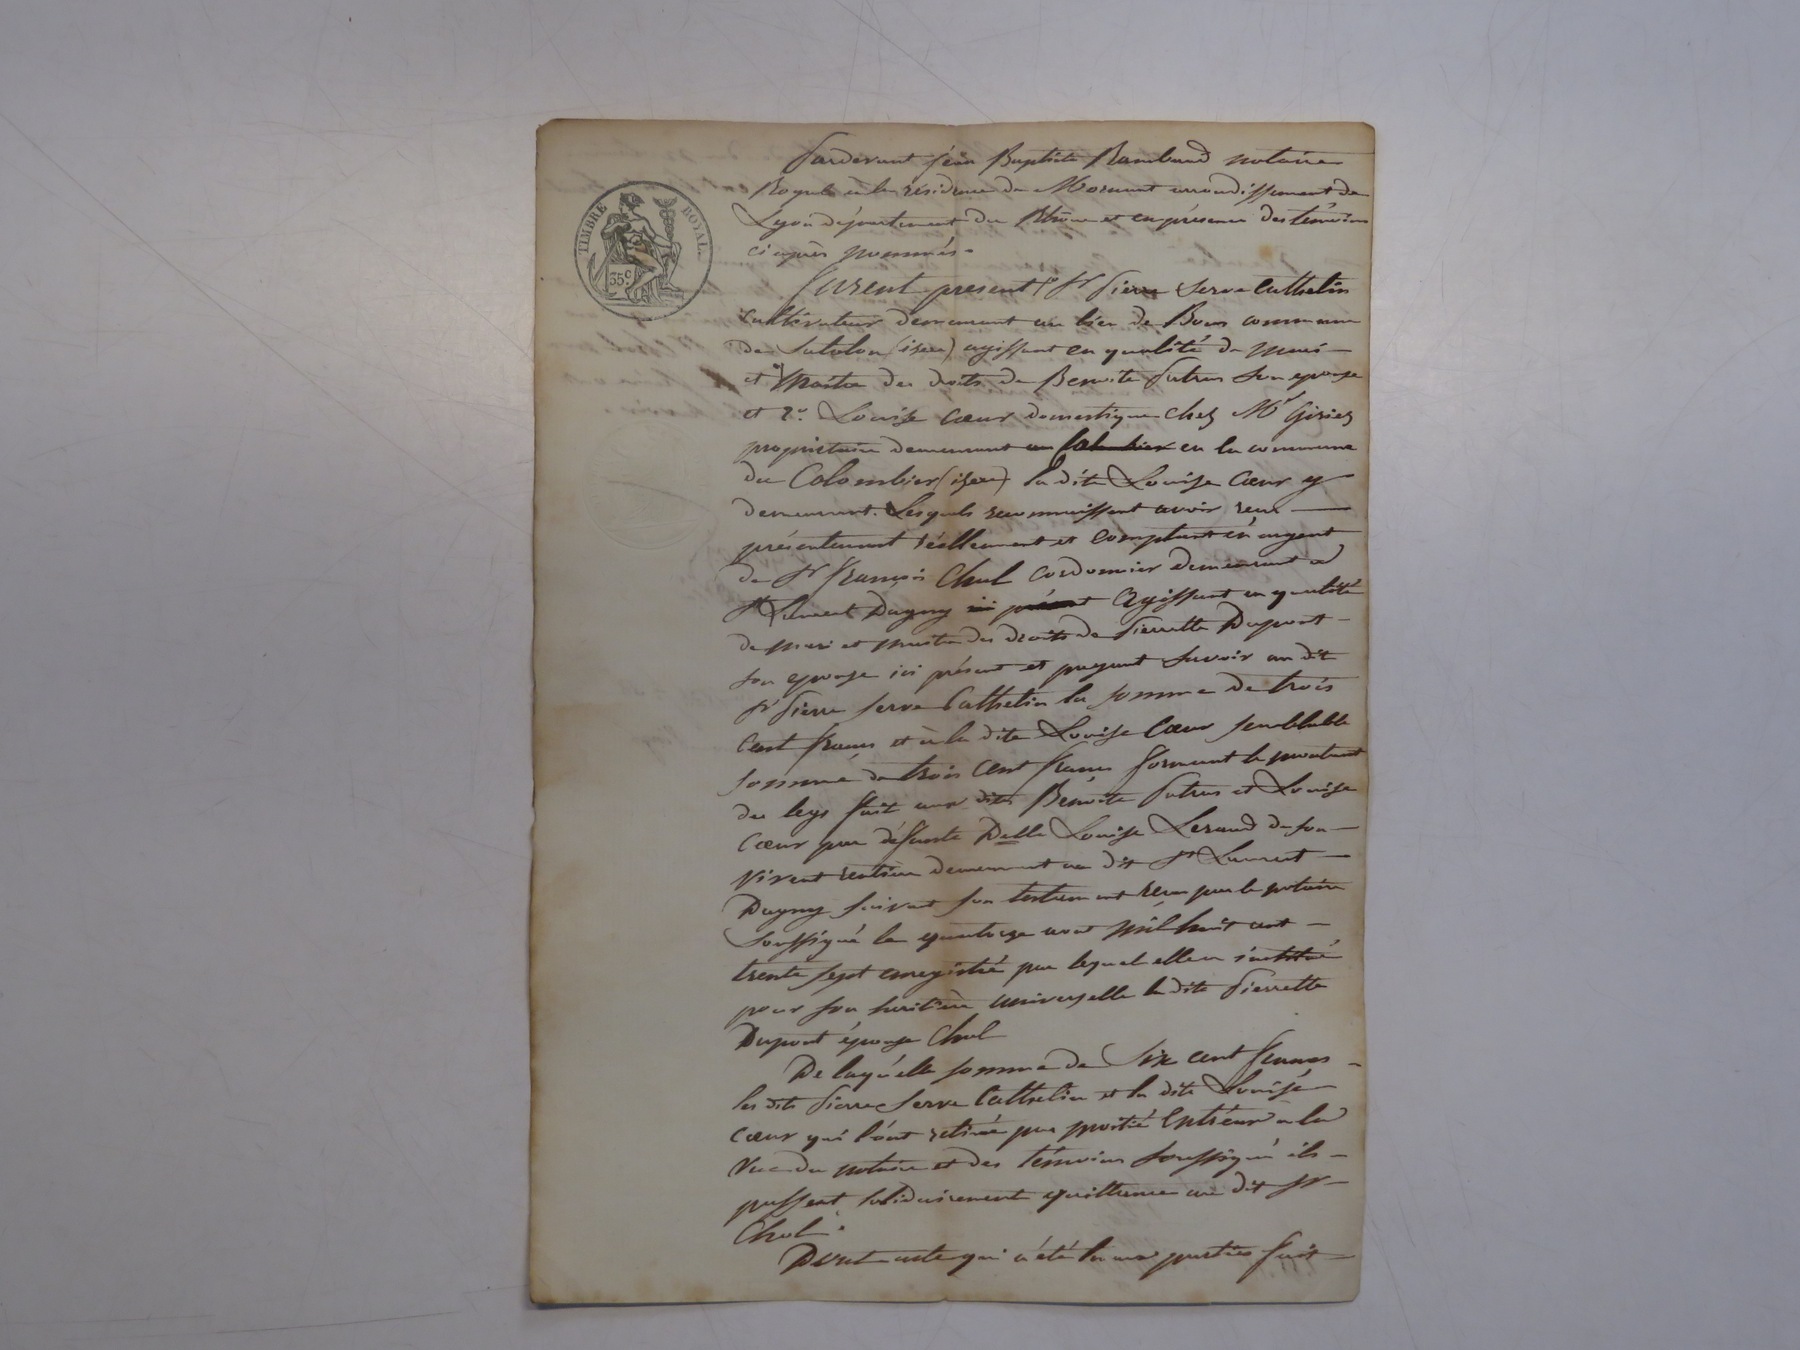 TIMBRE ROYAL.
35c
Pardevant jean Baptiste Rambaud notaire
Royale à la résidence de Mornant arrondissement de
Lyon département du Rhône et en présence des témoins
ci après nommés.
furent present 1º Sr Pierre Serve Cathelin
cultivateur demeurant au lieu de Bons commune
de Satolas (isere) agissant en qualité de mari
et Maitre des droits de Benoite Putrus son epouse
et 2º Louise Cœur domestique chez Mr
propriétaire demeurant au Colombier en la commune
du Colombier (isere) la dite Louise Cœur y
demeurant. Lesquels reconnaissent avoir reçu
présentement réellement et comptant en argent
de Sr françois Chol cordonnier demeurant à
St Laurent Dagny ici présent Agissant en qualité
de mari et maitre des droits de Pierrette Dupont
son epouse ici présent et payant Savoir au dit
Sr Pierre Serve Cathelin la somme de trois
Cent francs et à la dite Louise Cœur semblable
somme de trois Cent francs formant le montant
du legs fait aux dites Benoite Putrus et Louise
Cœur par défunte Delle Louise de son
Vivant rentière demeurant au dit St Laurent
Dagny suivant son testament reçu par le notaire
Soussigné le quatorze aout Mil huit cent
trente sept enregistré par lequel elle a institué
pour son heritière universelle la dite Pierrette
Dupont épouse Chol
De laquelle somme de Six cent francs
les dits Pierre Serve Cathelin et la dite Louise
Cœur qui l'ont retirée par moitié Entr'eux à la
Vue du notaire et des témoins soussigné ils
passent solidairement quittance au dit Sr
Chol.
Dont acte qui a été lu aux parties fait